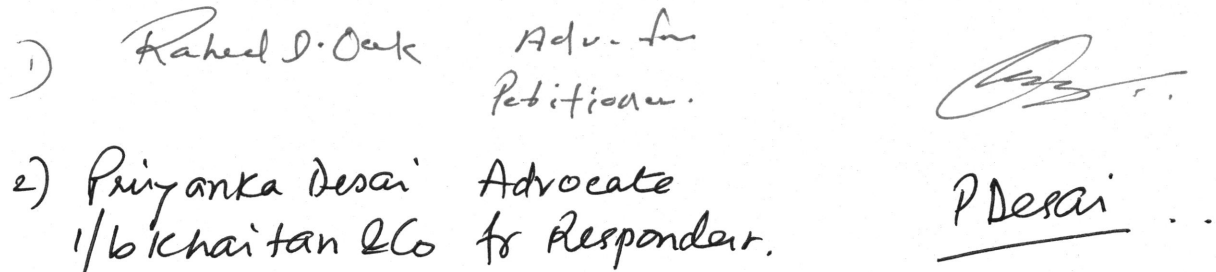 1) Raheel D. Oak Adv. for
Petitioner.
2) Priyanka Desai Advocate
i/b Khaitan & Co fr Respondent.
P Desai